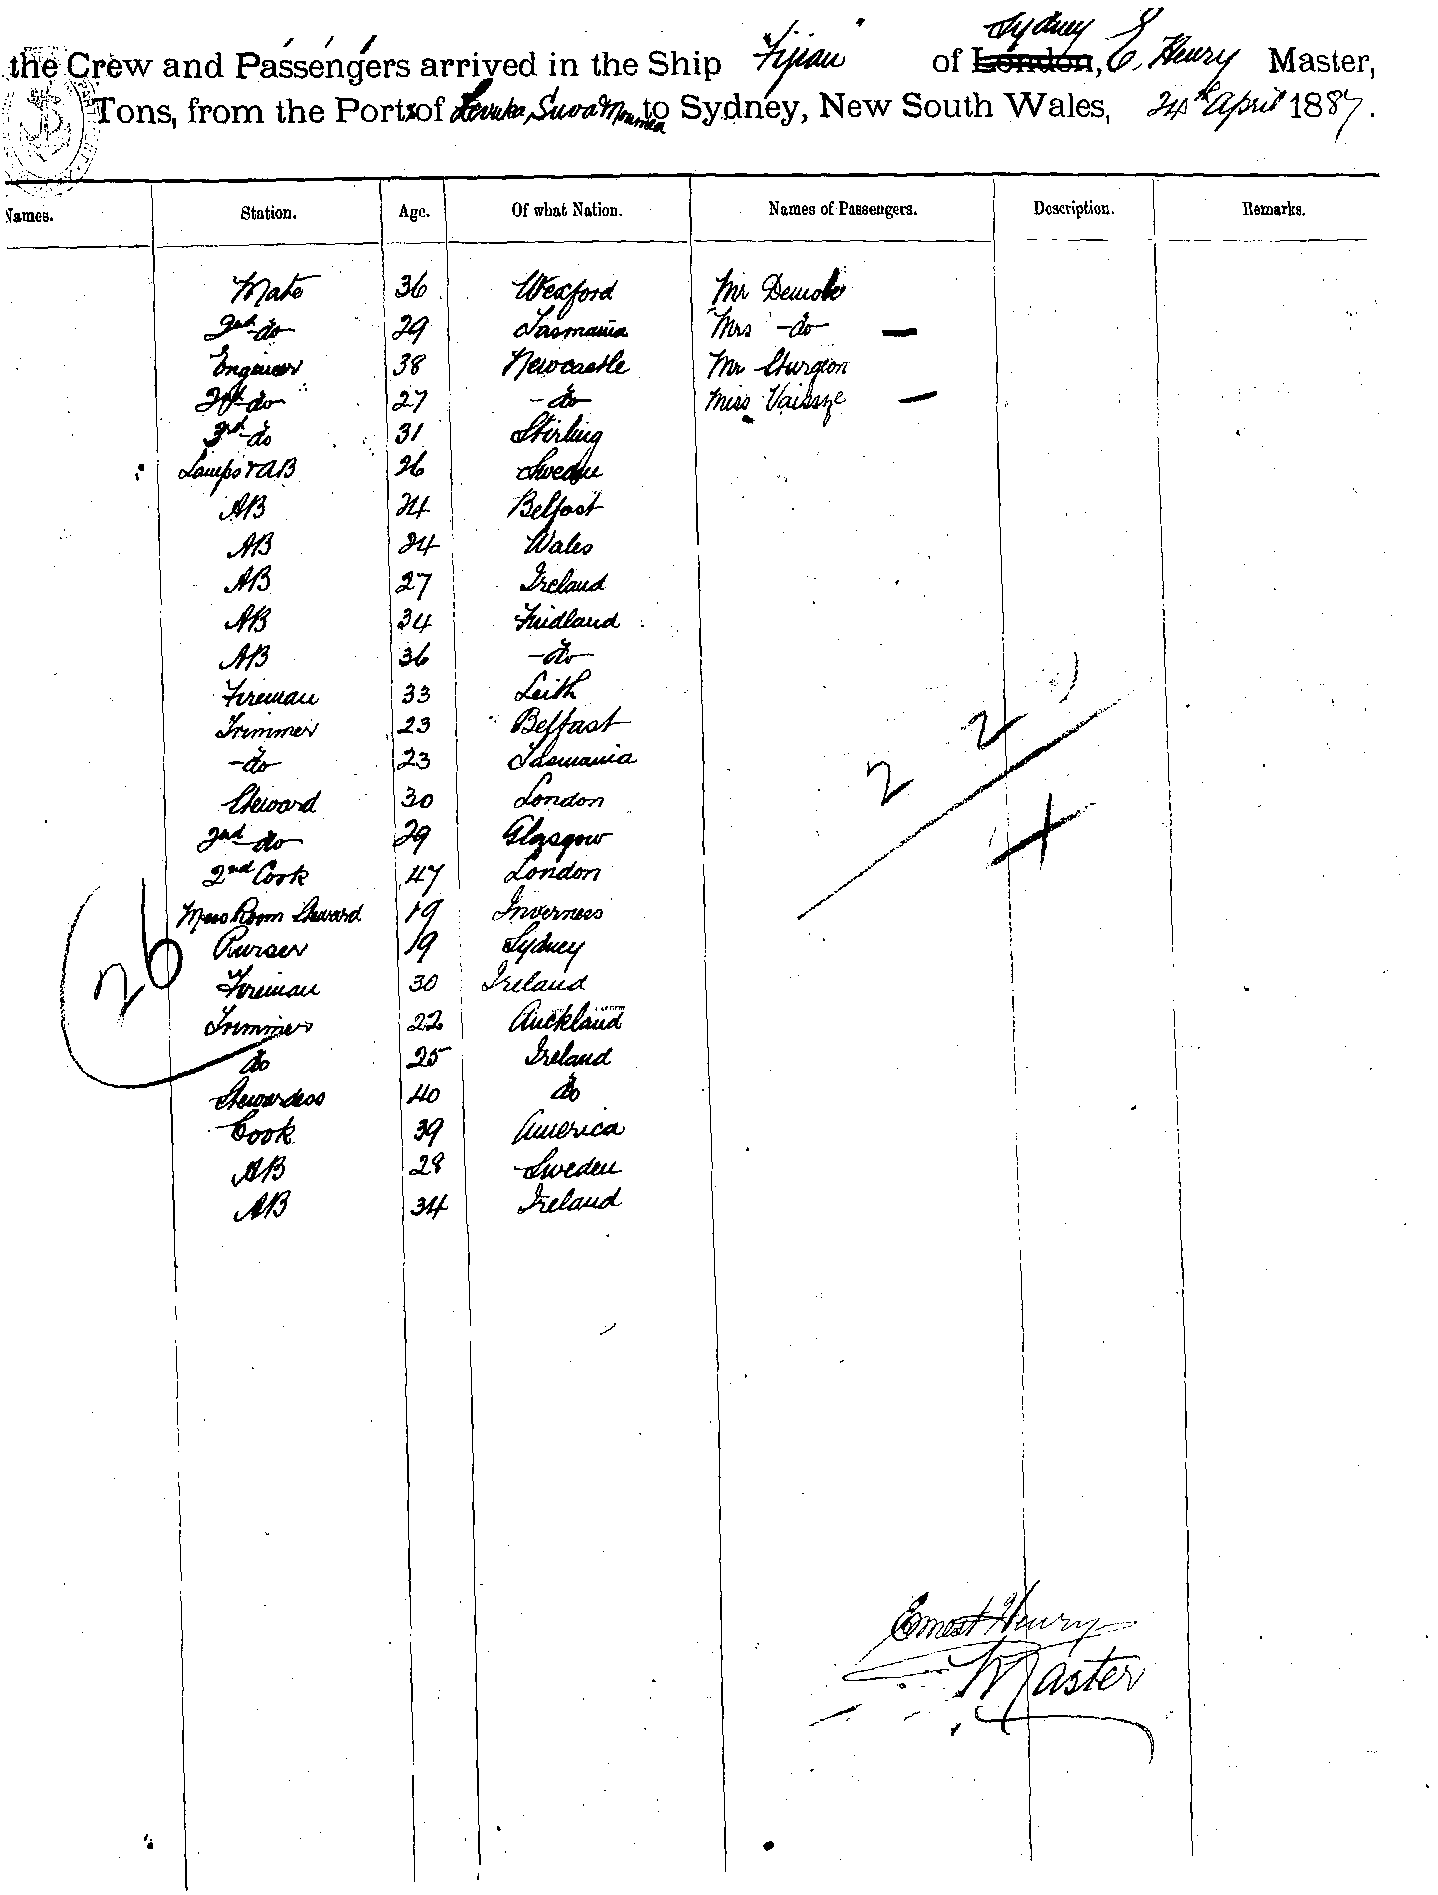 the Crew and Passengers arrived in the Ship "Fijian" of London, Sydney E. Henry Master,
Tons, from the Ports of Levuka, Suva & Noumea to Sydney, New South Wales, 24th April 1887.
Names. Station. Age. Of what Nation. Names of Passengers. Description. Remarks.
Mate 36 Wexford Mr
2nd do 29 Tasmania Mrs do —
Engineer 38 Newcastle Mr Sturgeon
2nd do 27 do Miss —
3rd do 31 Stirling
Lamps & AB 26 Sweden
AB 24 Belfast
AB 24 Wales
AB 27 Ireland
AB 34
AB 36 do
Fireman 33 Leith
Trimmer 23 Belfast
do 23 Tasmania
Steward 30 London
2nd do 29 Glasgow
2nd Cook 47 London
Mess Room Steward 19 Inverness
Purser 19 Sydney
Fireman 30 Ireland
Trimmer 22 Auckland
do 25 Ireland
Stewardess 40 do
Cook 39 America
AB 28 Sweden
AB 34 Ireland
26
2 2
4
Ernest Henry
Master